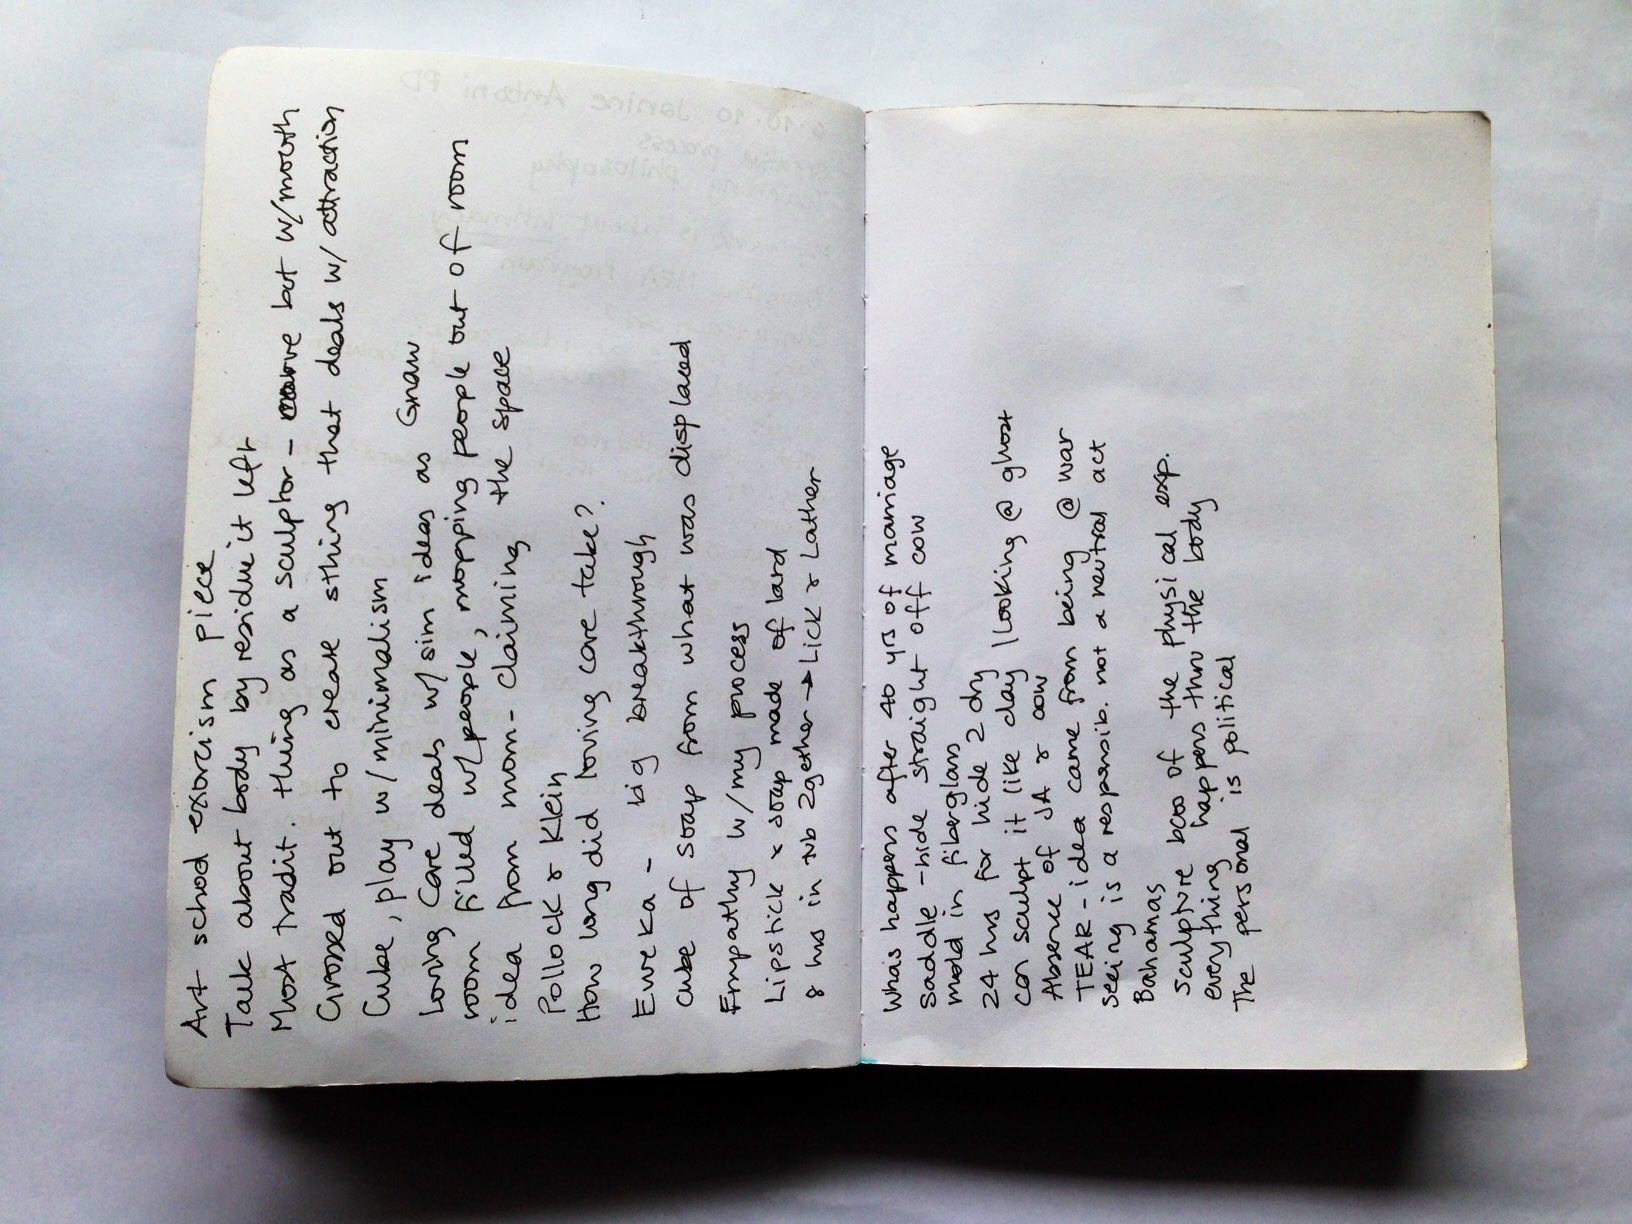 Art school exorcism piece
Talk about body by residue it left
Most tradit. thing as a sculptor - carve but w/mouth
Grossed out to create sthing that deals w/ attraction
Cube, play w/minimalism
Loving Care deals w/ sim ideas as Gnaw
room filled w/people, mopping people out of room
idea from mom - claiming the space
Pollock & Klein
How long did loving care take?
Eureka - big breakthrough
cube of soap from what was displaced
Empathy w/my process
Lipstick & soap made of lard
8 hrs in tub 2gether → Lick & Lather
Whats happens after 40 yrs of marriage
Saddle - hide straight off cow
mold in fiberglass
24 hrs for hide 2 dry
can sculpt it like clay | Looking @ ghost
Absence of JA & cow
TEAR - idea came from being @ war
Seeing is a responsib. not a neutral act
Bahamas
Sculpture bcos of the physical exp.
everything happens thru the body
The personal is political